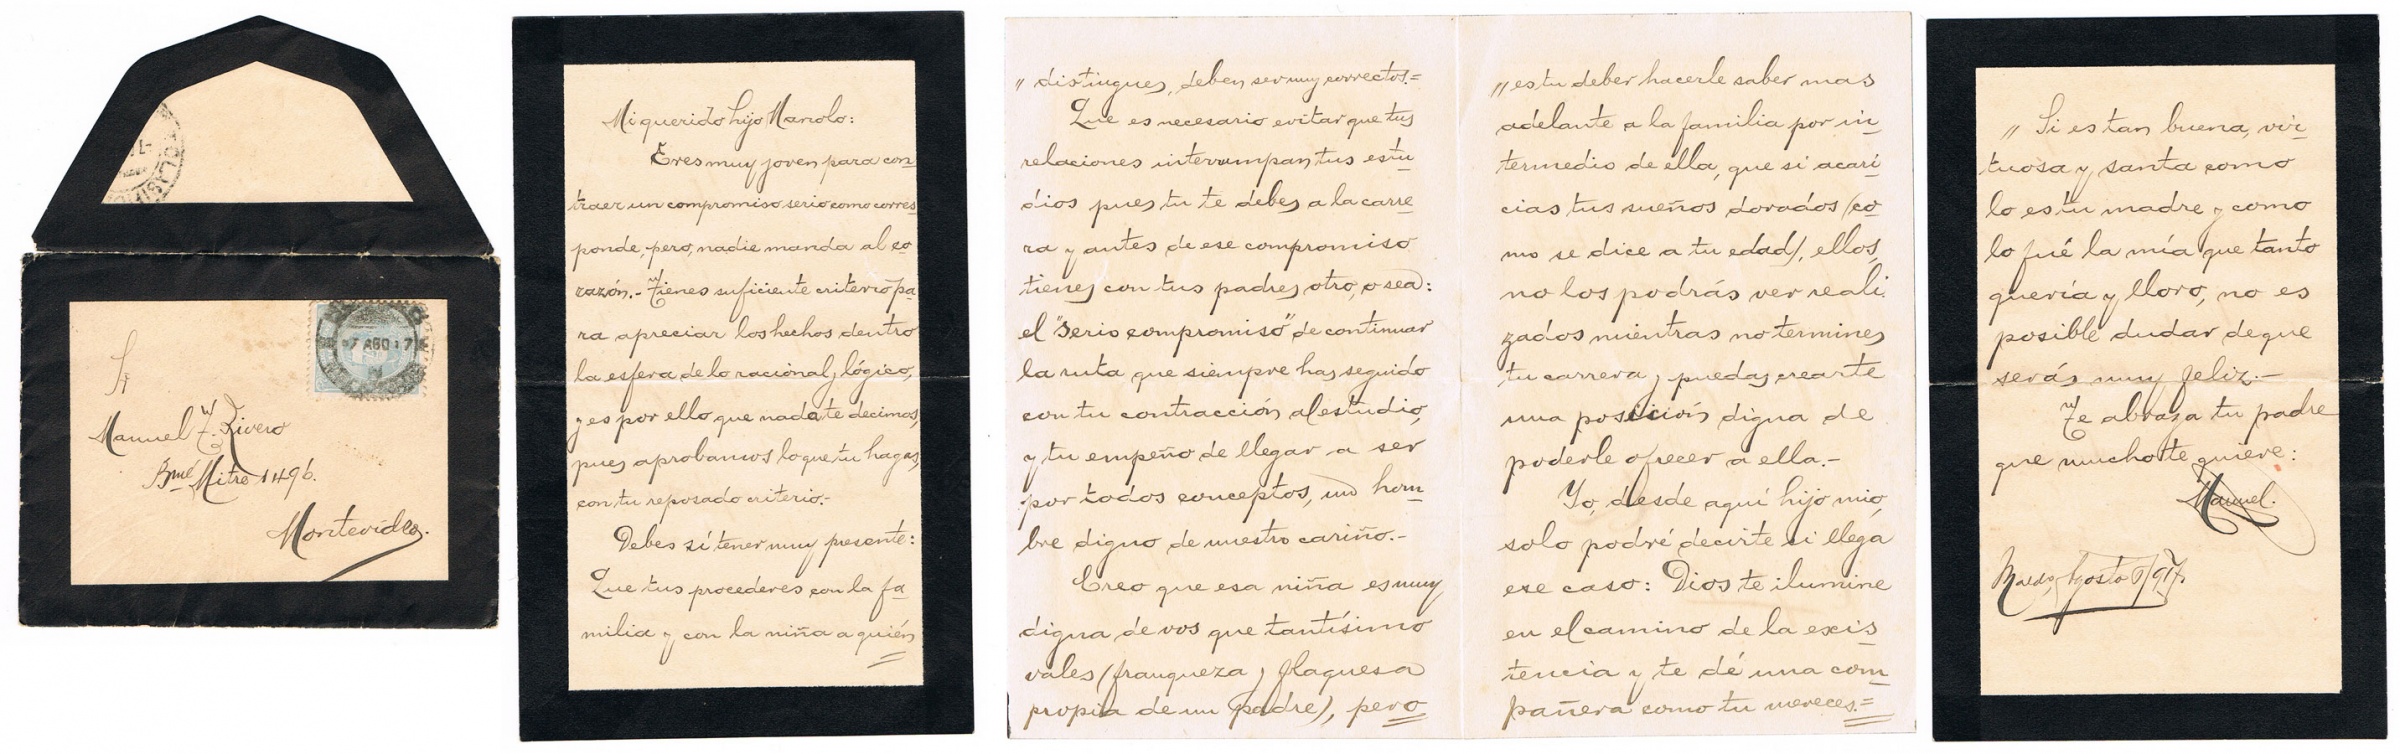 Sr
Manuel T. Rivero
Bmé Mitre 1496.
Montevideo.
7 AGO 17
Mi querido hijo Manolo:
Eres muy joven para con-
traer un compromiso serio como corres-
ponde, pero, nadie manda al co-
razón.- Tienes suficiente criterio pa-
ra apreciar los hechos dentro
la esfera de lo racional y lógico,
y es por ello que nada te decimos,
pues aprobamos lo que tu hagas,
con tu reposado criterio.-
Debes sí tener muy presente:
Que tus procederes con la fa-
milia y con la niña a quién
" distingues, deben ser muy correctos.=
Que es necesario evitar que tus
relaciones interrumpan tus estu-
dios pues tu te debes a la carre-
ra y antes de ese compromiso
tienes con tus padres otro, o sea:
el "serio compromiso" de continuar
la ruta que siempre has seguido
con tu contracción al estudio,
y tu empeño de llegar a ser
por todos conceptos, un hom-
bre digno de nuestro cariño.-
Creo que esa niña es muy
digna de vos que tantísimo
vales (franqueza y flaquesa
propia de un padre), pero
" es tu deber hacerle saber mas
adelante a la familia por in-
termedio de ella, que si acari-
cias tus sueños dorados (co-
mo se dice a tu edad), ellos,
no los podrás ver reali-
zados mientras no termines
tu carrera y puedas crearte
una posición digna de
poderle ofrecer a ella.-
Yo, desde aquí hijo mio,
solo podré decirte si llega
ese caso: Dios te ilumine
en el camino de la exis-
tencia y te dé una com-
pañera como tu mereces.=
" Si es tan buena, vir-
tuosa y santa como
lo es tu madre y como
lo fué la mía que tanto
quería y lloro, no es
posible dudar de que
serás muy feliz.-
Te abraza tu padre
que mucho te quiere:
Manuel.
Maldo, Agosto 6/917.